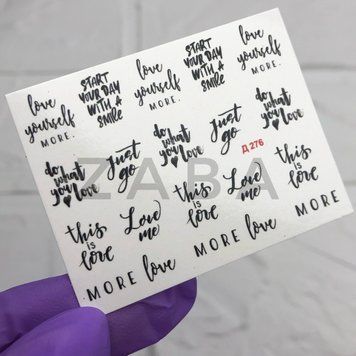 love
yourself
MORE.
START
YOUR DAY
WITH A
SMILE
love
yourself
MORE.
START
YOUR DAY
WITH A
SMILE
love
yourself
MORE.
do
what
you
love
Just
go
do
what
you
love
Just
go
Д 276
do
what
you
love
ZABA
this
is
love
Love
me
this
is
love
Love
me
this
is
love
MORE love
MORE love
MORE